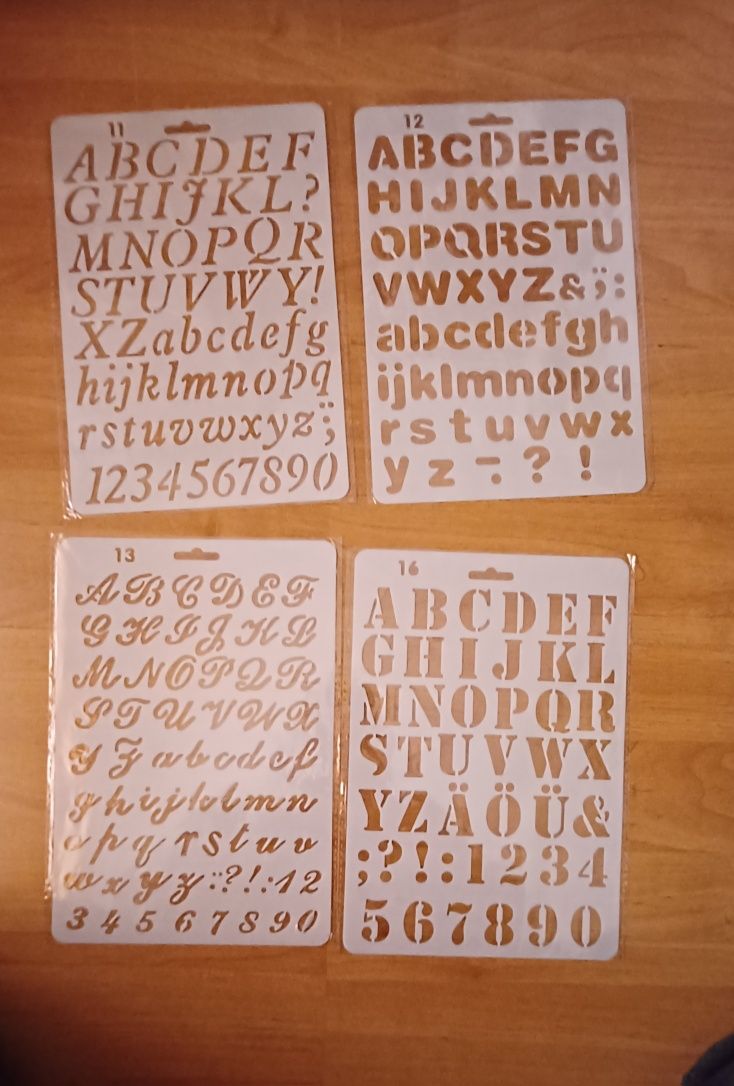 11
ABCDEF
GHIJKL?
MNOPQR
STUVWY!
XZabcdefg
hijklmnopq
rstuvwxyz;̈
1234567890
12
ABCDEFG
HIJKLMN
OPQRSTU
VWXYZ&;̈:
abcdefgh
ijklmnopq
rstuvwx
yz-.?!
13
ABCDEF
GHIJKL
MNOPQR
STUVWX
YZabcdef
ghijklmn
opqrstuv
wxyz:̈?!:12
34567890
16
ABCDEF
GHIJKL
MNOPQR
STUVWX
YZÄÖÜ&
;?!:1234
567890